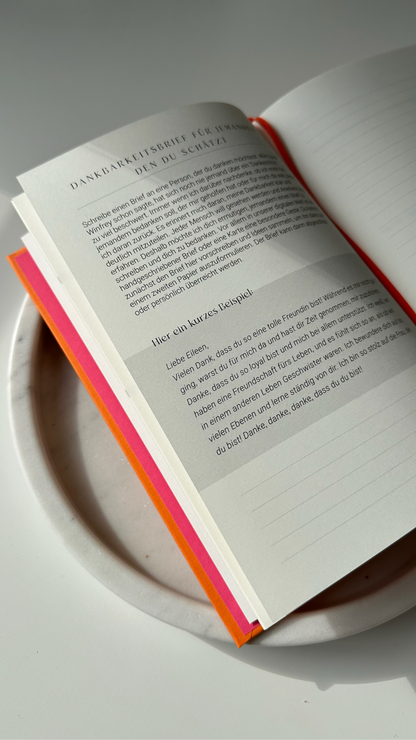 DANKBARKEITSBRIEF FÜR
DEN DU SCHÄTZT
Schreibe einen Brief an eine Person, der du danken möchtest.
Winfrey schon sagte, hat sich noch nie jemand über ein
zu viel beschwert. Immer wenn ich darüber nachdenke,
jemandem bedanken soll, der mir geholfen hat oder für mich da
ich daran zurück. Es erinnert mich daran, meine Dankbarkeit
deutlich mitzuteilen. Jeder Mensch will gesehen werden und
erfahren. Deshalb möchte ich dich ermutigen, jemandem
schreiben und dich zu bedanken. Vor allem in unserer
handgeschriebener Brief oder eine Karte eine besondere Geste.
zunächst den Brief hier vorschreiben und Ideen sammeln, um
einem zweiten Papier auszuformulieren. Der Brief kann dann
oder persönlich überreicht werden.
Hier ein kurzes Beispiel:
Liebe Eileen,
Vielen Dank, dass du so eine tolle Freundin bist! Während es mir
ging, warst du für mich da und hast dir Zeit genommen, mit
Danke, dass du so loyal bist und mich bei allem unterstützt.
haben eine Freundschaft fürs Leben, und es fühlt sich so an, als
in einem anderen Leben Geschwister waren. Ich bewundere dich
vielen Ebenen und lerne ständig von dir. Ich bin so stolz auf
du bist! Danke, danke, danke, dass du du bist!